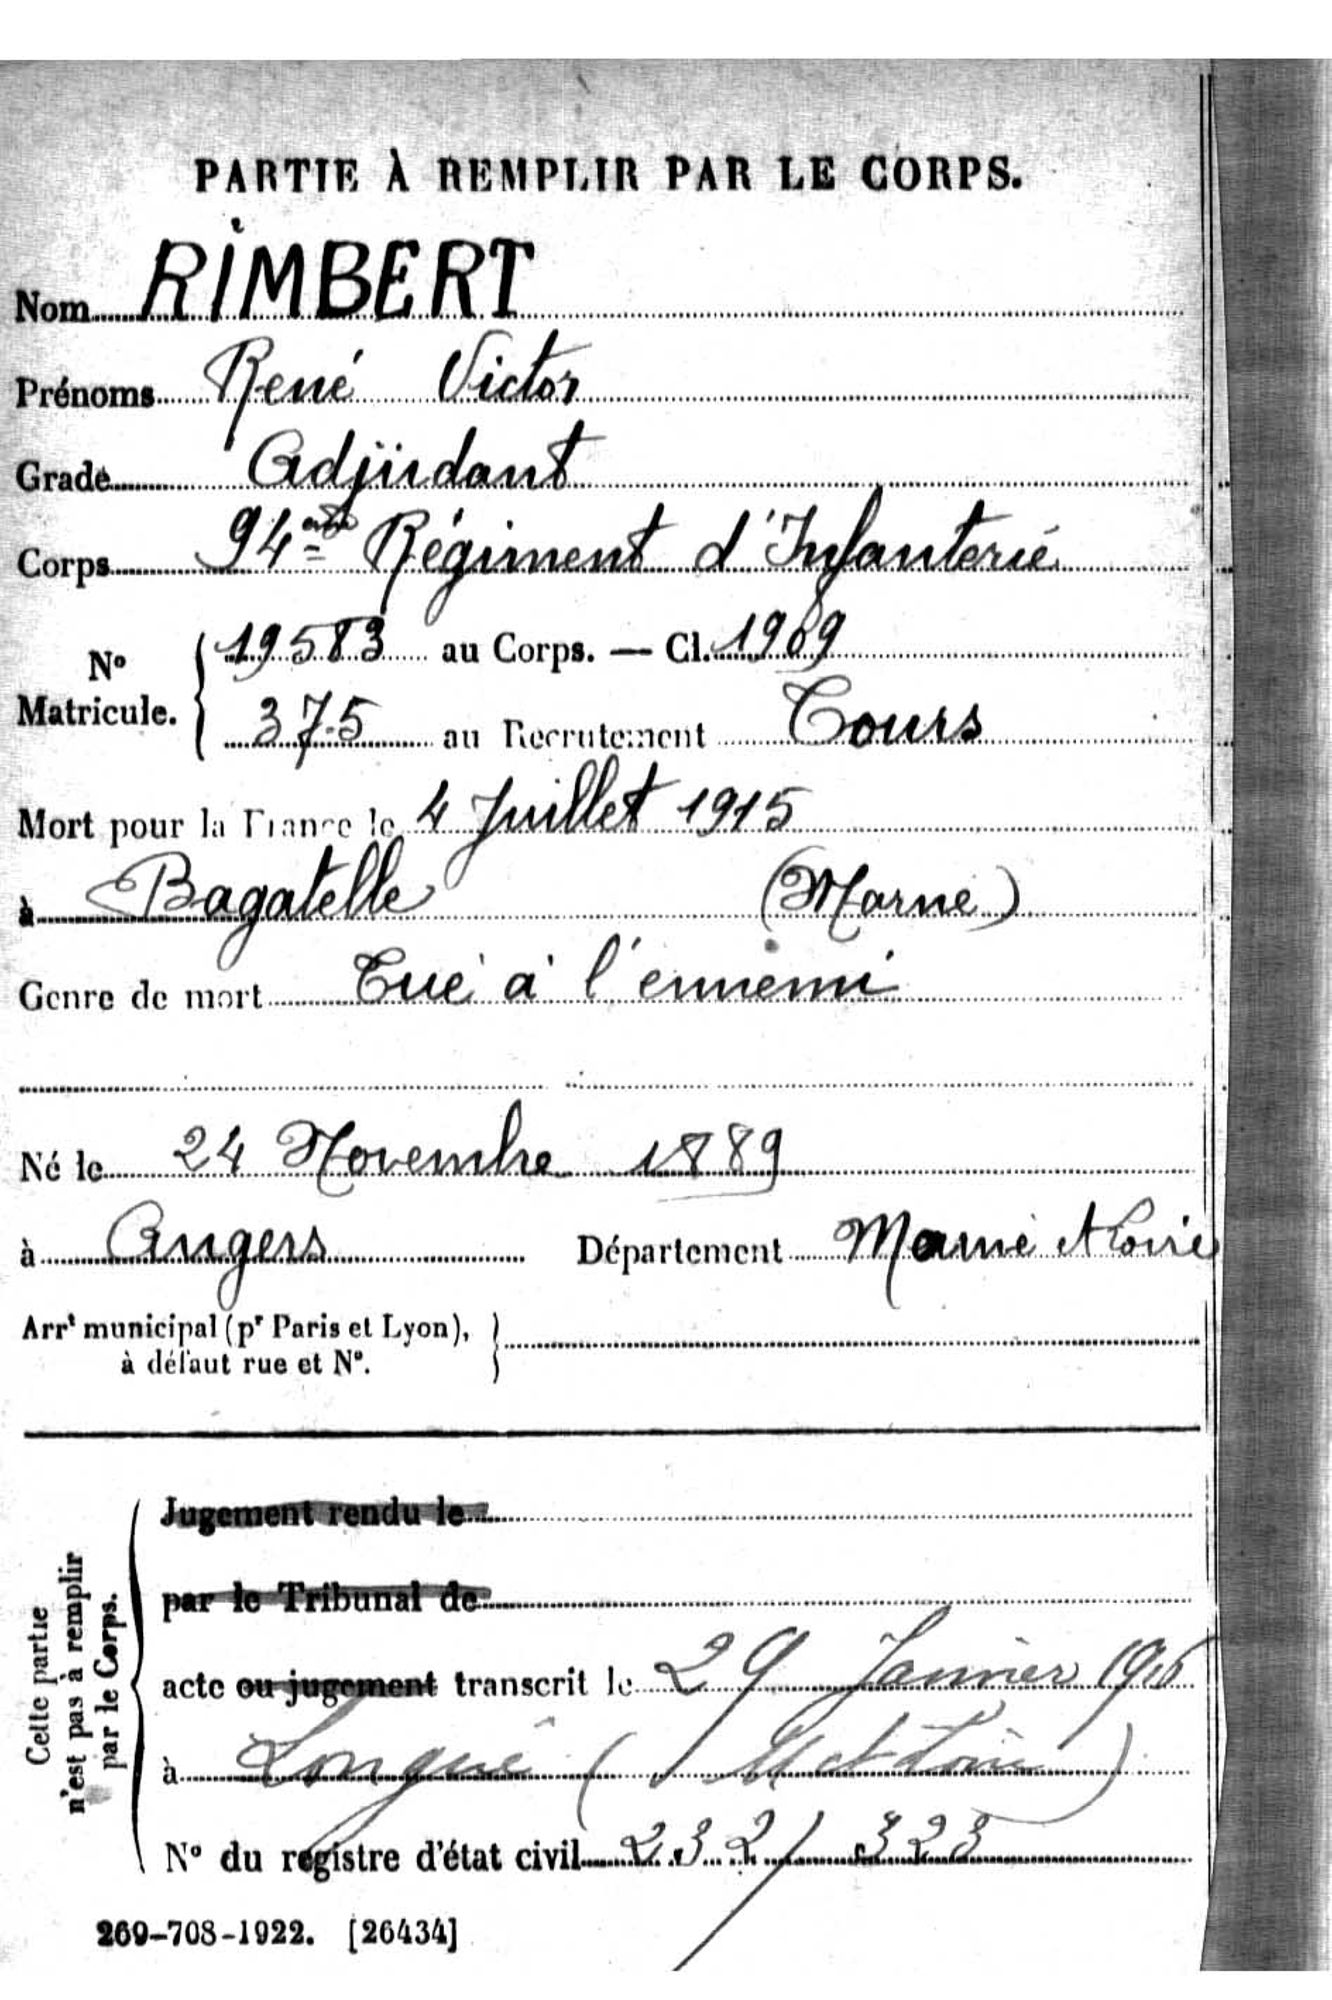 PARTIE À REMPLIR PAR LE CORPS.
Nom RIMBERT
Prénoms René Victor
Grade Adjudant
Corps 94ème Régiment d'Infanterie
N° Matricule. 19583 au Corps. — Cl. 1909
375 au Recrutement Tours
Mort pour la France le 4 Juillet 1915
à Bagatelle (Marne)
Genre de mort Tué à l'ennemi
Né le 24 Novembre 1889
à Angers Département Maine et Loire
Arrt municipal (pr Paris et Lyon),
à défaut rue et N°.
Cette partie
n'est pas à remplir
par le Corps.
Jugement rendu le
par le Tribunal de
acte ou jugement transcrit le 29 Janvier 1916
à Longué (M et Loire)
N° du registre d'état civil 232/323
269-708-1922. [26434]